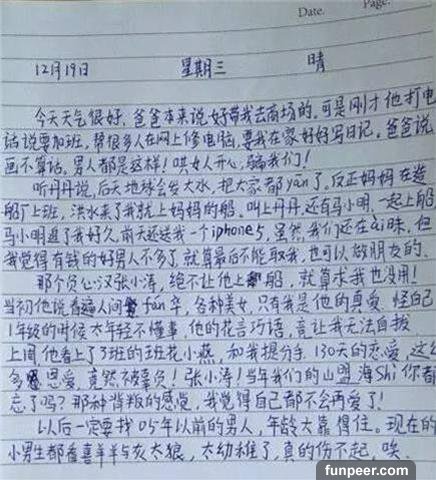 Date.
Page.
12月19日 星期三 晴
今天天气很好，爸爸本来说好带我去商场的，可是刚才他打电
话说要加班，帮很多人在网上修电脑，要我在家好好写日记。爸爸说
画不算话，男人都是这样！哄女人开心，骗我们！
听丹丹说，后天地球会发大水，把大家都yān了，反正妈妈在造
船厂上班，洪水来了我就上妈妈的船。叫上丹丹，还有马小明，一起上船，
马小明追了我好久，前天还送我一个iphone5，虽然我们还在ài昧，但
我觉得有钱的好男人不多了，就算最后不能取我，也可以做朋友的。
那个负心汉张小涛，绝不让他上船，就算求我也没用！
当初他说看遍人间fán华，各种美女，只有我是他的真爱，怪自己
1年级的时候太年轻不懂事，他的花言巧语，竟让我无法自拔
上周他看上了3班的班花小燕，和我提分手，130天的恋爱，这么
多恩爱，竟然被辜负！张小涛！当年我们的山盟海Shì你都
忘了吗？那种背叛的感觉，我觉得自己都不会再爱了！
以后一定要找05年以前的男人，年龄大靠得住。现在的
小男生都看喜羊羊与灰太狼，太幼稚了，真的伤不起，唉
funpeer.com